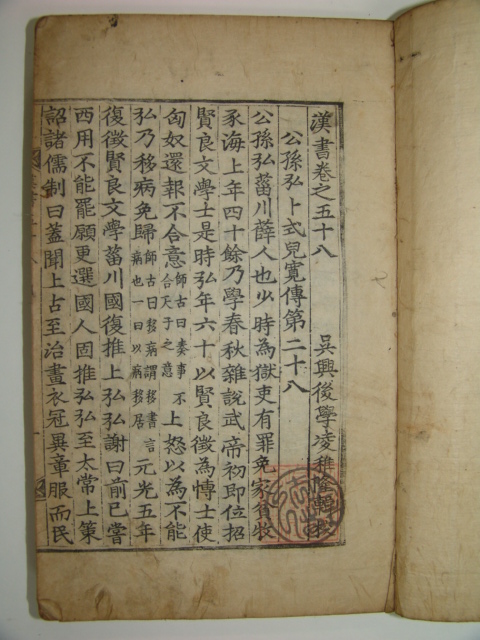 漢書卷之五十八
吳興後學凌稚隆輯校
公孫弘卜式兒寬傳第二十八
公孫弘菑川薛人也少時為獄吏有罪免家貧牧
豕海上年四十餘乃學春秋雜說武帝初即位招
賢良文學士是時弘年六十以賢良徵為博士使
匈奴還報不合意師古曰奏事不合天子之意上怒以為不能
弘乃移病免歸師古曰移病謂移書言病也一曰以病移居元光五年
復徵賢良文學菑川國復推上弘弘謝曰前已嘗
西用不能罷願更選國人固推弘弘至太常上策
詔諸儒制曰蓋聞上古至治畫衣冠異章服而民